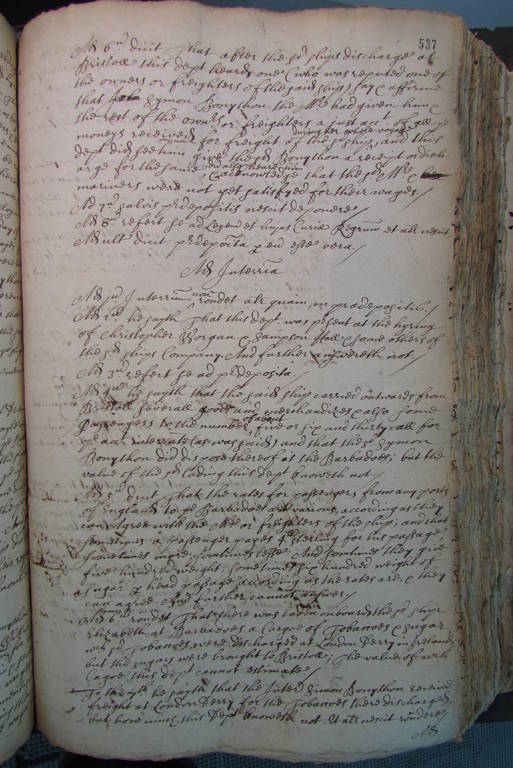 537
Ad 6um dicit That after the sd ships discharge at
Bristoll this dept heard one (who was reputed one of
the owners or freighters of the said ship) say & affirme
that Symon Bonython the Mr had given him &
the rest of the owners or freighters a just acct of all
moneys received for freight of the sd ship
during her whole voyage
and this
dept did see him give the sd Bonython a receipt or disch
arge for the same
& acknowledge that the sd Mr &
mariners were not yet satisfyed for their wages /
Ad 7um salvis prdepositis nescit deponere /
Ad 8um refert se ad Legem et hujus Curiæ Regrum et alr nescit
Ad ult dicit prdeposita p eum esse vera /
Ad Interria
Ad pu Interrium non rondet alr quam in prædepositis /
Ad 2um he sayth That this dept was present at the hyring
of Christopher Morgan & Sampson Hall & some others of
the sd ships Company. And further answereth not /
Ad 3um refert se ad prdeposita
Ad 4um he sayth that the said ship carried outwards from
Bristoll severall goods and merchandizes & also some
Passengers to the number
of about
five or six and thirty all for
interrate (as was said) and that the sd Symon
Bonython did dispose thereof at the Barbadoes; but the
value of the sd lading this dept knoweth not /
Ad 5um dicit That the rates for passengers from any ports
of England to ye Barbadoes are various, according as they
can Agree with the Mr or freighters of the ship; and that
sometimes a passenger payes sterling for his passage
sometimes more, sometimes lesse. And sometimes they give
five hundred weight, sometimes six hundred weight of
sugar p head passage according as the rates are, & they
can agree And further cannot answer /
Ad 6um rondet That there was laden onboard the sd ship
Elizabeth at Barbadoes a Cargoe of Tobaccoes & sugar
wch sd Tobaccoes were discharged at London Derry in Ireland
but the sugars were brought to Bristoll; The value of wch
Cargoe this dept cannot estimate /
To the 7th he sayth that the Interr Symon Bonython received
freight at London Derry for the Tobaccoes there discharged
but how much this Dept knoweth not. Et alr nescit rondere /
Ad